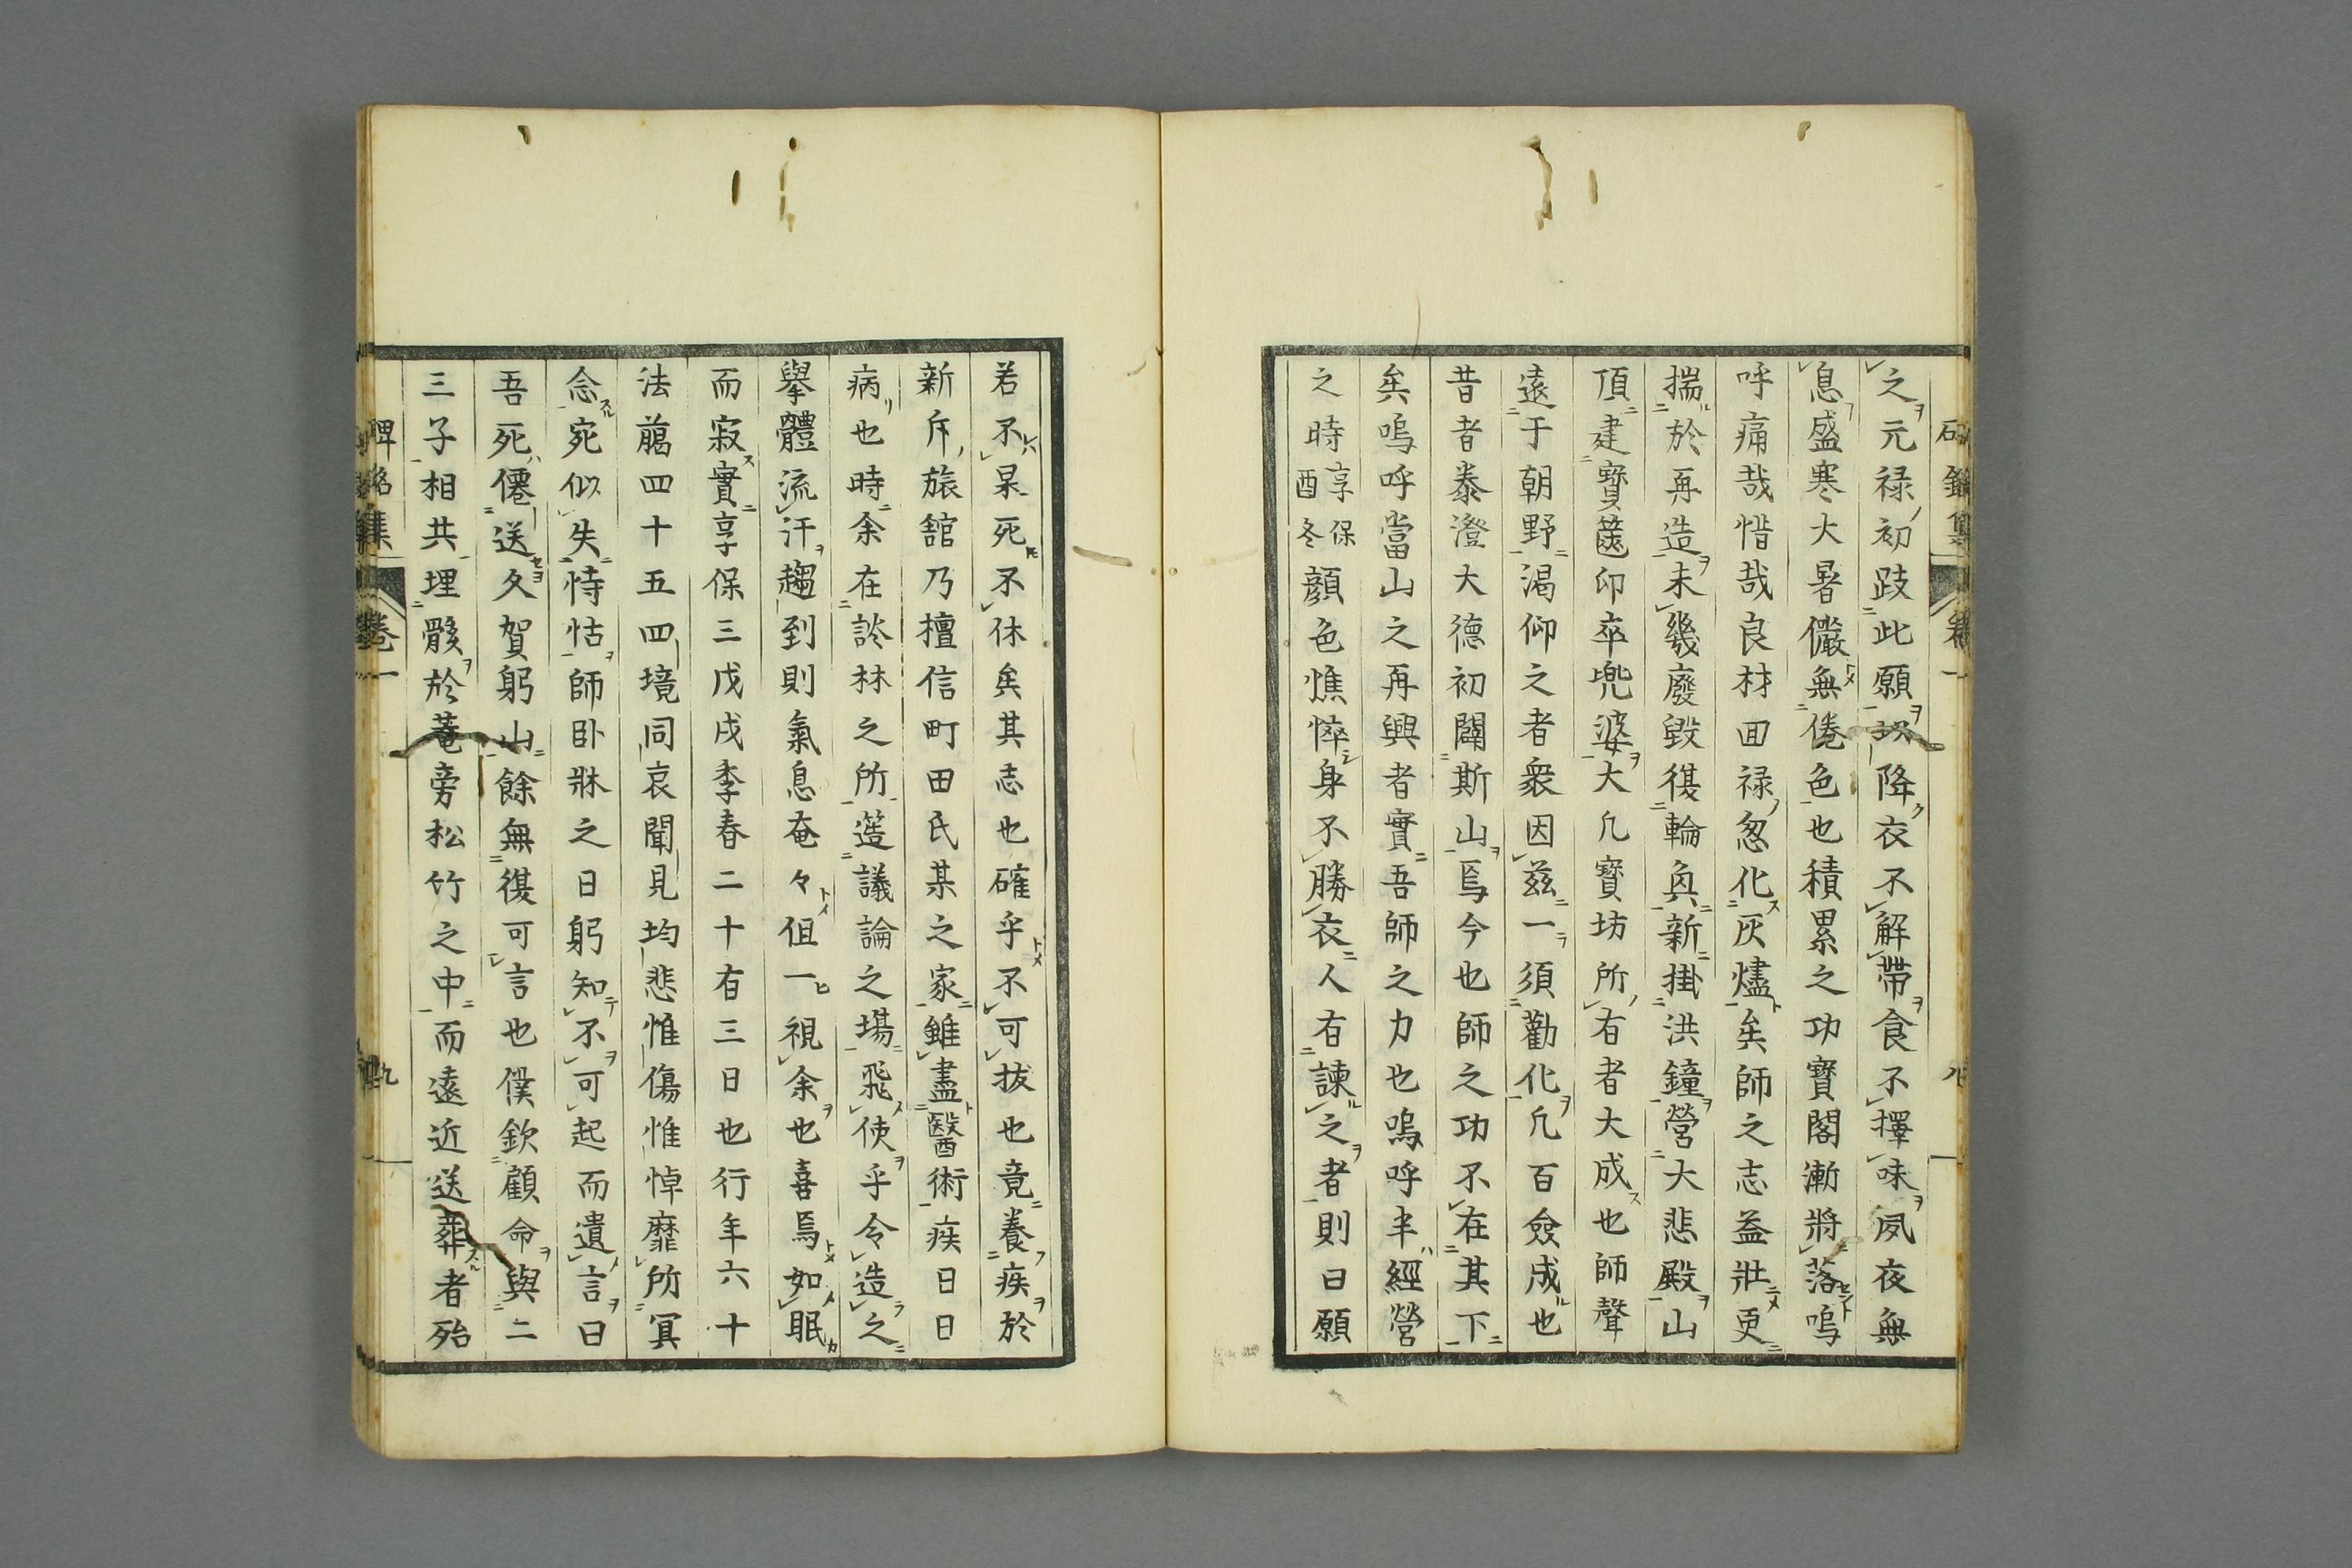 之元禄初跂此願以降衣不解帶食不擇味夙夜無
息盛寒大暑儼無倦色也積累之功寳閣漸將落嗚
呼痛哉惜哉良材囬禄忽化灰燼矣師之志益壯更
揣於再造未幾廢毀復輪奐新掛洪鐘營大悲殿山
頂建寳篋印卒兜婆大凢寳坊所有者大成也師聲
遠于朝野渇仰之者衆因兹一須勸化凢百僉成也
昔者泰澄大德初闢斯山焉今也師之功不在其下
矣嗚呼當山之再興者實吾師之力也嗚呼半經營
之時享保酉冬顔色憔悴身不勝衣人有諫之者則曰願
碑銘集 卷一 八
若不杲死不休矣其志也確乎不可拔也竟養疾於
新斥旅舘乃檀信町田氏某之家雖盡醫術疾日日
病也時余在於林之所造議論之場飛使乎令造之
擧體流汗趨到則氣息奄々但一視余也喜焉如眠
而寂實享保三戊戌季春二十有三日也行年六十
法﨟四十五四境同哀聞見均悲惟傷惟悼靡所寘
念宛似失恃怙師卧牀之日躬知不可起而遺言曰
吾死僊送久賀躬山餘無復可言也僕欽顧命與二
三子相共埋骸於菴旁松竹之中而遠近送葬者殆
碑銘集 卷一 九